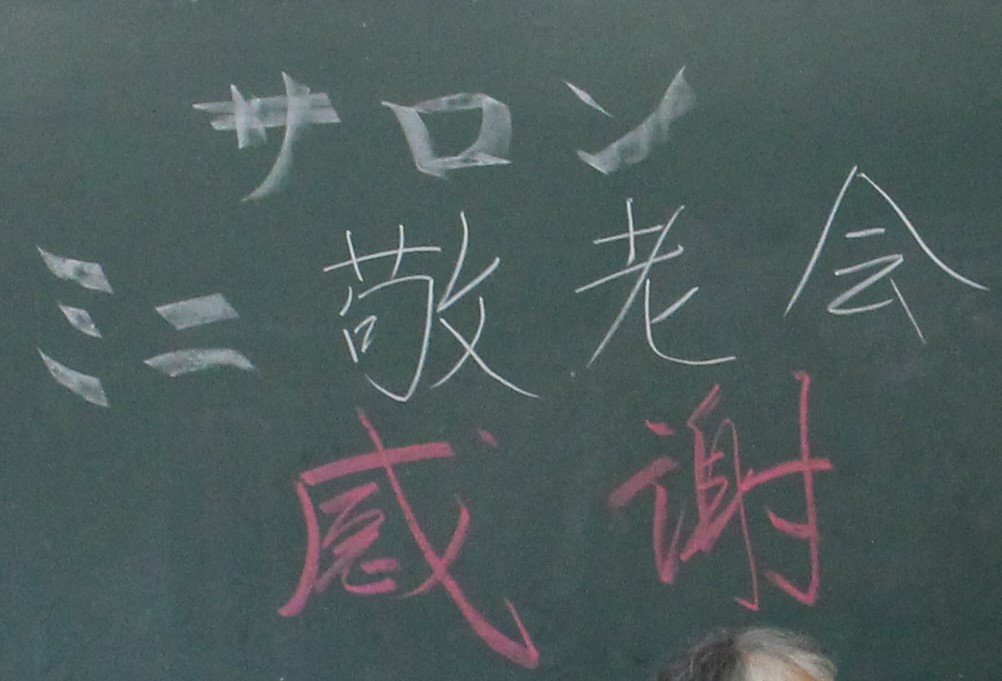 サロン
ミニ敬老会
感謝